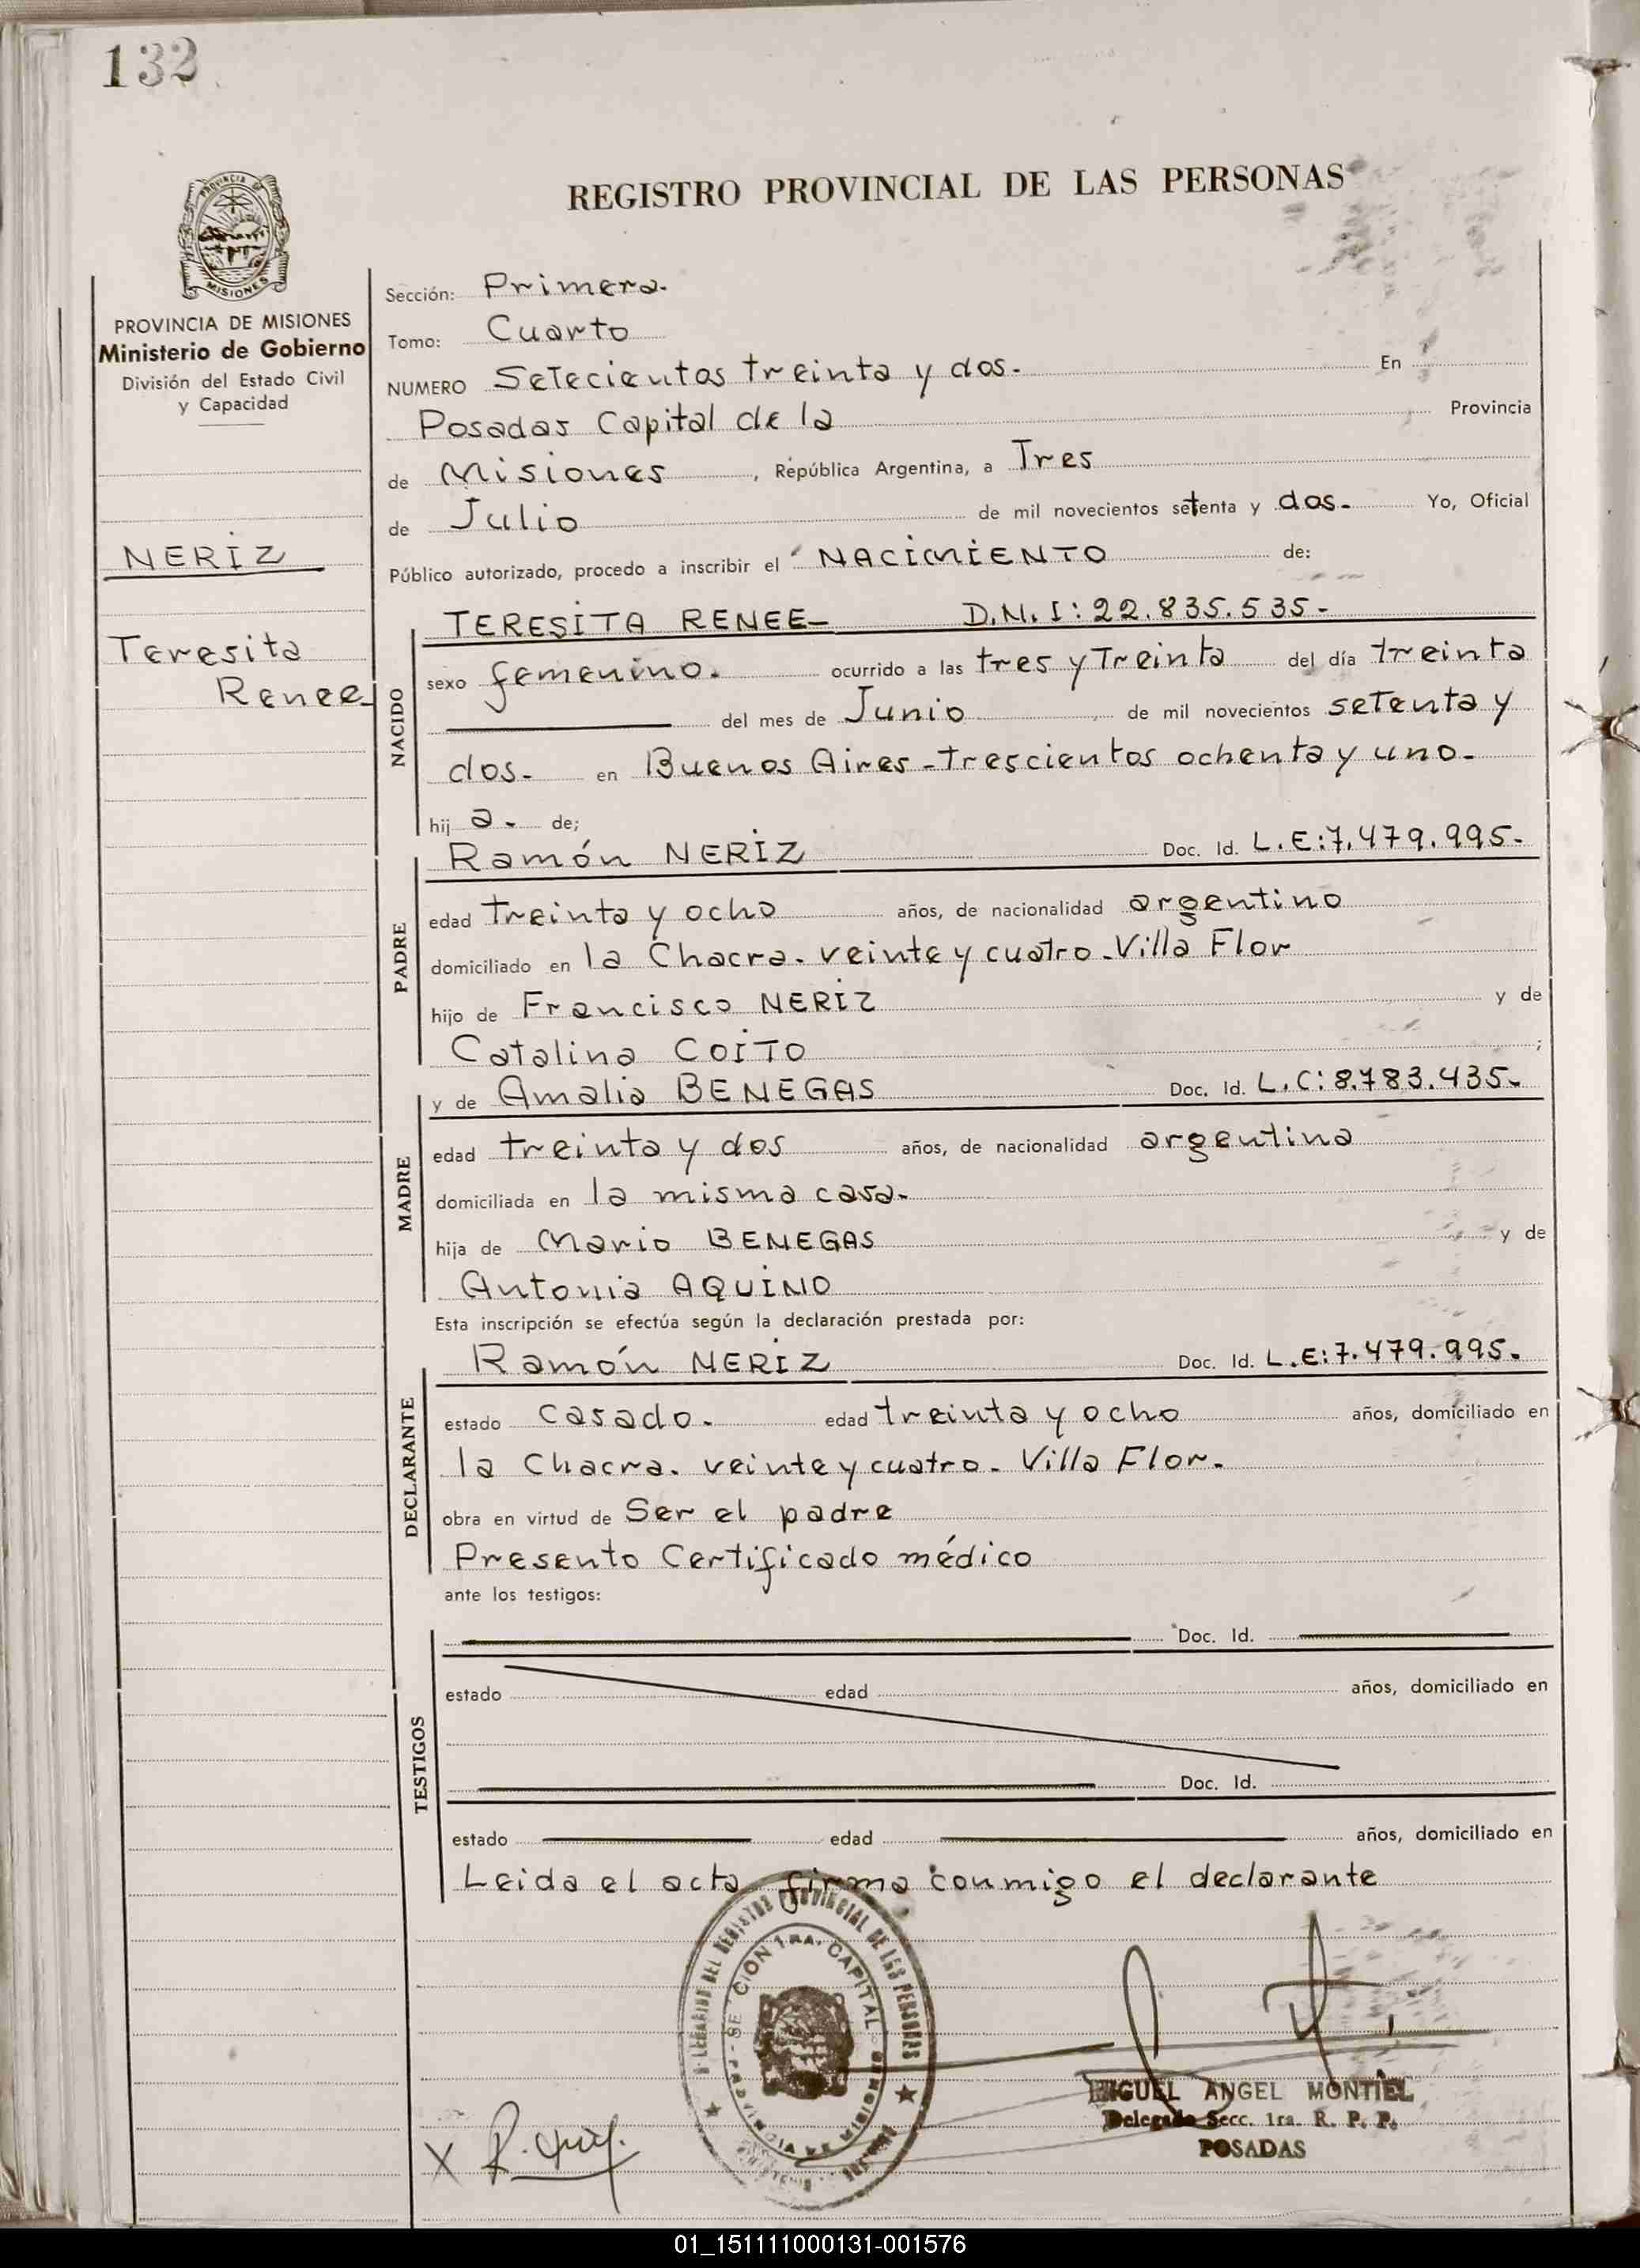 132
REGISTRO PROVINCIAL DE LAS PERSONAS
PROVINCIA DE MISIONES
Ministerio de Gobierno
División del Estado Civil
y Capacidad
NERIZ
Teresita
Renee
Sección: Primera.
Tomo: Cuarto
NUMERO Setecientos treinta y dos. En
Posadas Capital de la Provincia
de Misiones, República Argentina, a Tres
de Julio de mil novecientos setenta y dos. Yo, Oficial
Público autorizado, procedo a inscribir el NACIMIENTO de:
NACIDO
TERESITA RENEE D.N.I: 22.835.535-
sexo femenino. ocurrido a las tres y Treinta del día treinta
del mes de Junio de mil novecientos setenta y
dos. en Buenos Aires - trescientos ochenta y uno.
hij a. de;
PADRE
Ramón NERIZ Doc. Id. L.E: 7.479.995-
edad treinta y ocho años, de nacionalidad argentino
domiciliado en la Chacra. veinte y cuatro. Villa Flor
hijo de Francisco NERIZ y de
Catalina COITO ;
MADRE
y de Amalia BENEGAS Doc. Id. L.C: 8.783.435.
edad treinta y dos años, de nacionalidad argentina
domiciliada en la misma casa.
hija de Mario BENEGAS y de
Antonia AQUINO
Esta inscripción se efectúa según la declaración prestada por:
DECLARANTE
Ramón NERIZ Doc. Id. L.E: 7.479.995.
estado casado. edad treinta y ocho años, domiciliado en
la Chacra. veinte y cuatro. Villa Flor.
obra en virtud de Ser el padre
Presento Certificado médico
ante los testigos:
TESTIGOS
Doc. Id.
estado edad años, domiciliado en
Doc. Id.
estado edad años, domiciliado en
Leida el acta firma conmigo el declarante
DEL REGISTRO PROVINCIAL DE LAS PERSONAS
SECCION 1RA. CAPITAL
PROVINCIA DE MISIONES
MIGUEL ANGEL MONTIEL
Delegado Secc. 1ra. R. P. P.
POSADAS
X R.
01_151111000131-001576